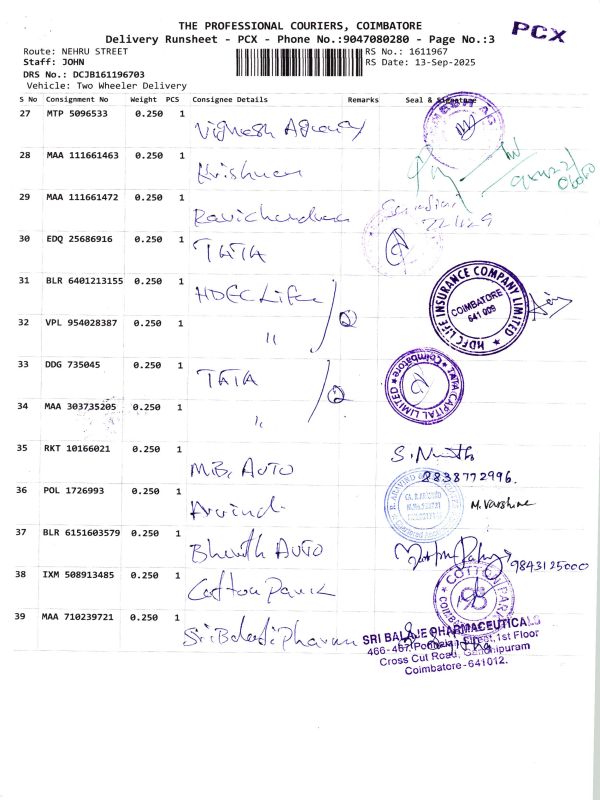 THE PROFESSIONAL COURIERS, COIMBATORE
PCX
Delivery Runsheet - PCX - Phone No.:9047080280 - Page No.:3
Route: NEHRU STREET
RS No.: 1611967
Staff: JOHN
RS Date: 13-Sep-2025
DRS No.: DCJB161196703
Vehicle: Two Wheeler Delivery
S No Consignment No Weight PCS Consignee Details Remarks Seal & Signature
27 MTP 5096533 0.250 1 Vignesh Agency
28 MAA 111661463 0.250 1 Krishnan
29 MAA 111661472 0.250 1 Ravichandran
30 EDQ 25686916 0.250 1 TATA
31 BLR 6401213155 0.250 1 HDFC Life
HDFC LIFE INSURANCE COMPANY LIMITED
COIMBATORE
641 009
32 VPL 954028387 0.250 1 "
2
33 DDG 735045 0.250 1 TATA
TATA CAPITAL LIMITED
Coimbatore
34 MAA 303735205 0.250 1 "
2
35 RKT 10166021 0.250 1 M.B. AUTO
8838772996.
36 POL 1726993 0.250 1 Arvind
M. Varshine
37 BLR 6151603579 0.250 1 Bharath AUTO
9843125000
38 IXM 508913485 0.250 1 Cotton Park
COTTON PARK
39 MAA 710239721 0.250 1 Sri Balaji Pharam
SRI BALAJE PHARMACEUTICALS
466-467, Street, 1st Floor
Cross Cut Road, Gandhipuram
Coimbatore-641012.